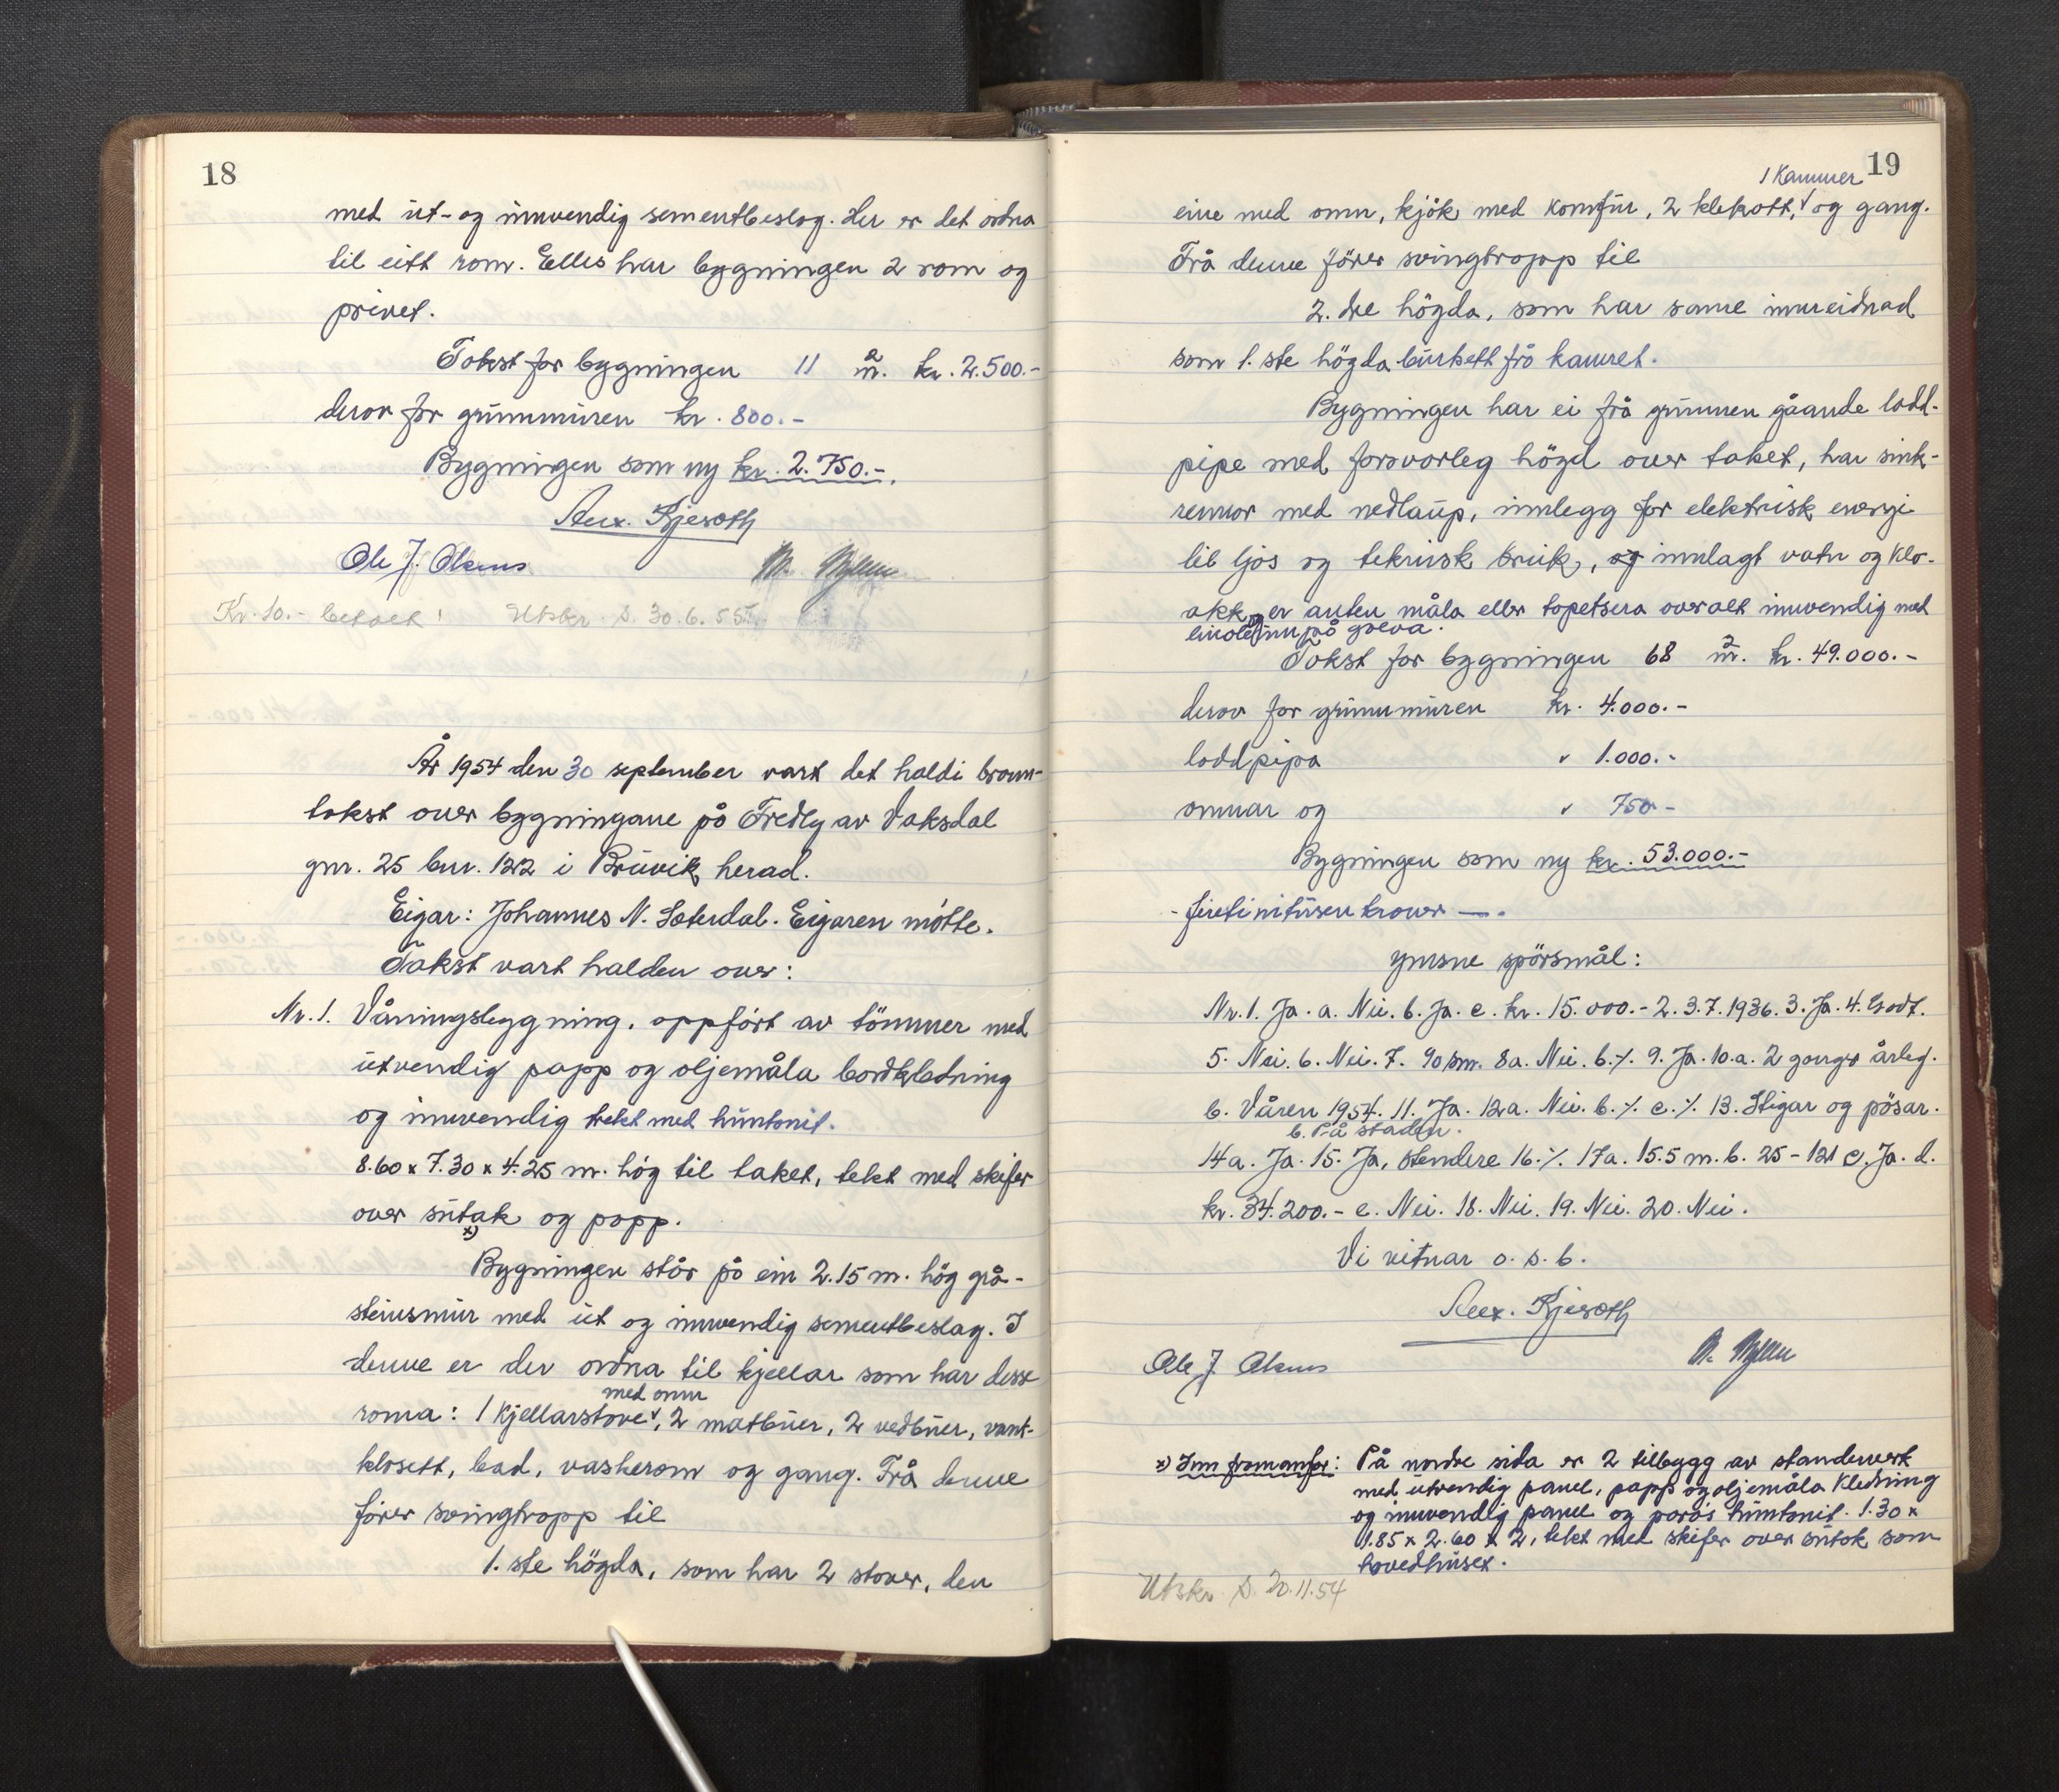 18
med ut- og innvendig sementbeslag. Her er det ordna
til eitt rom. Elles har bygningen 2 rom og
privet.
Takst for bygningen 11 m². kr. 2.500.-
derav for grunnmuren kr. 800.-
Bygningen som ny kr. 2.750.-.
Alex. Kjesoth
Ole J.
Kr. 10.- betalt! Utskr. S. 30.6.55.
År 1954 den 30 september vart det haldi brann-
takst over bygningane på Fredly av Vaksdal
gnr. 25 bnr. 122 i Bruvik herad.
Eigar: Johannes N. Sæterdal. Eigaren møtte.
Takst vart halden over:
Nr. 1. Våningsbygning, oppført av tömmer med
utvendig papp og oljemåla bordkledning
og innvendig trekt med huntonit.
8.60 x 7.30 x 4.25 m. høg til taket, tekt med skifer
over sutak og papp.
x)
Bygningen står på ein 2.15 m. høg grå-
steinsmur med ut og innvendig sementbeslag. I
denne er der ordna til kjellar som har desse
med omn
roma: 1 kjellarstove √, 2 matbuer, 2 vedbuer, vant-
klosett, bad, vaskerom og gang. Frå denne
fører svingtrapp til
1. ste högda, som har 2 stover, den
19
1 Kammer
eine med omn, kjök med komfur, 2 klekott, √ og gang.
Frå denne förer svingtrapp til
2. dre högda, som har same innreidnad
som 1. ste högda burtsett frå kamret.
Bygningen har ei frå grunnen gåande lodd-
pipe med forsvarleg högd over taket, har sink-
rennor med nedlaup, innlegg for elektrisk energi
til ljos og teknisk bruk, og innlagt vatn og klo-
akk, er anten måla eller tapetsera overalt innvendig med
linoleum på golva.
Takst for bygningen 68 m². kr. 49.000.-
derav for grunnmuren kr. 4.000.-
loddpipa " 1.000.-
omnar og " 750-
Bygningen som ny kr. 53.000.-
- firetinitusen kroner —.
Ymsne spörsmål:
Nr. 1. Ja. a. Nei. b. Ja. c. kr. 15.000.- 2. 3.7.1936. 3. Ja. 4. Godt.
5. Nei. 6. Nei. 7. 90 sm. 8a. Nei. b. ./. 9. Ja. 10.a. 2 gonger årleg.
b. Våren 1954. 11. Ja. 12a. Nei. b. ./. c. ./. 13. Stigar og pösar.
b. På staden.
14a. Ja. 15. Ja, stendere 16. ./. 17a. 15.5 m. b. 25-121 c. Ja. d.
kr. 34.200.- e. Nei. 18. Nei. 19. Nei. 20. Nei.
Vi vitnar o. s. b.
Alex. Kjesoth
Ole J.
x) Inn framanfor: På nordre sida er 2 tilbygg av standerverk
med utvendig panel, papp og oljemåla kledning
og innvendig panel og porös huntonit. 1.30 x
1.85 x 2.60 x 2, tekt med skifer over sutak som
hovedhuset.
Utskr. S. 20.11.54